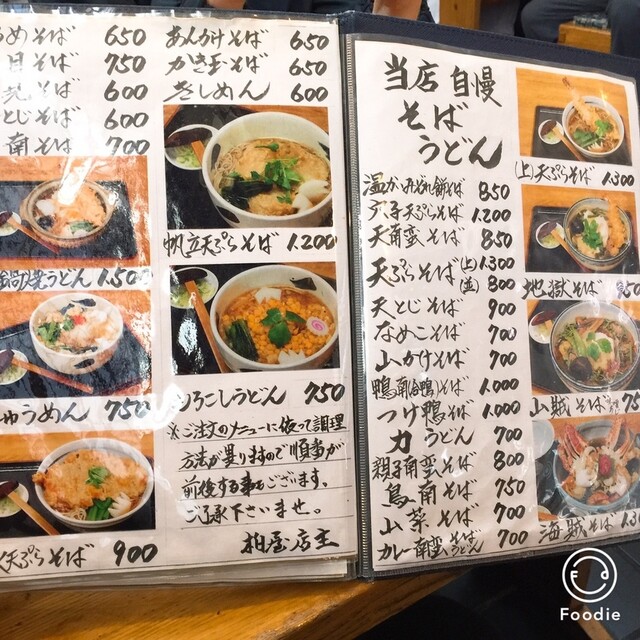 めそば 650
そば 750
そば 600
とじそば 600
南そば 700
あんかけそば 650
かき玉そば 650
きしめん 600
帆立天ぷらそば 1.200
鍋焼うどん 1.50
ゅうめん 75
ろこしうどん 750
天ぷらそば 900
※ご注文のメニューに依って調理
方法が異りますので順当が
前後する事もございます。
ご了承下さいませ。
柏屋店主
当店自慢
そば
うどん
温かいみぞれ餅そば 850
穴子天ぷらそば 1.200
天南蛮そば 850
天ぷらそば (上)1.300
(並) 800
天とじそば 900
なめこそば 700
山かけそば 700
鴨南(合鴨)そば 1.000
つけ鴨そば 1.000
力うどん 700
親子南蛮そば 800
鳥南そば 750
山菜そば 700
カレー南蛮そばうどん 700
(上)天ぷらそば 1.300
地獄そば 850
山賊そば 75
海賊そば 1.30
Foodie